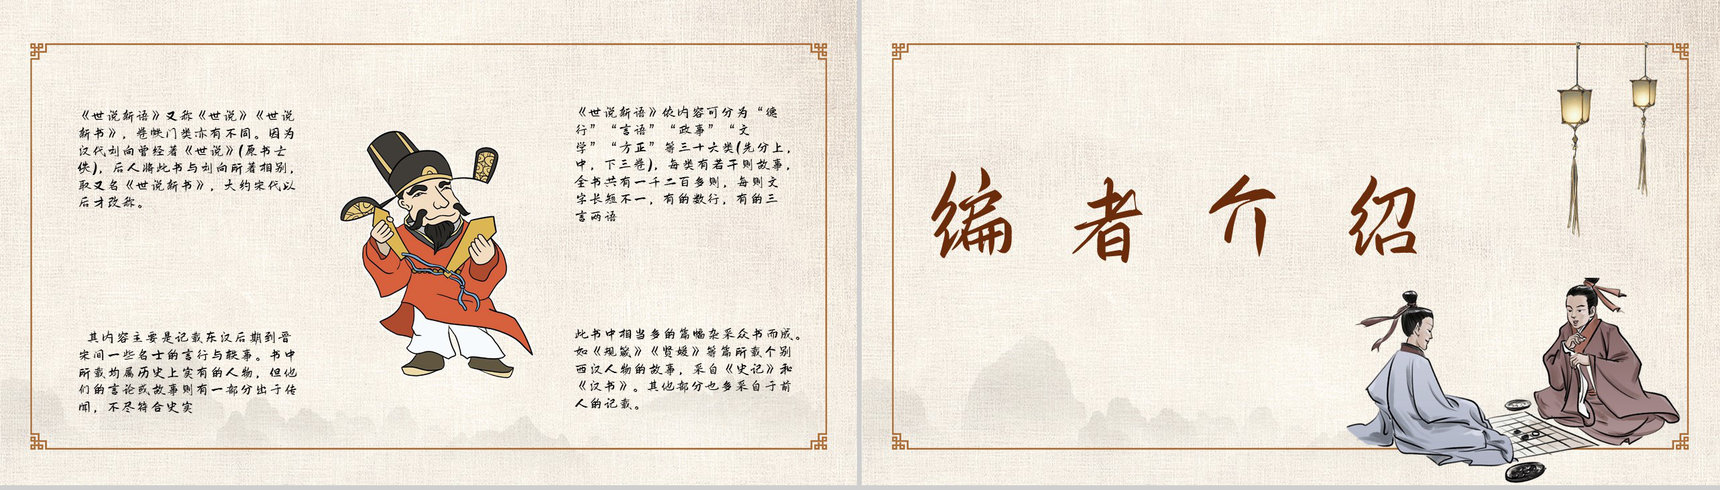 《世说新语》又称《世说》《世说
新书》，卷帙门类亦有不同。因为
汉代刘向曾经着《世说》(原书亡
佚)，后人将此书与刘向所着相别，
取又名《世说新书》，大约宋代以
后才改称。
其内容主要是记载东汉后期到晋
宋间一些名士的言行与轶事。书中
所载均属历史上实有的人物，但他
们的言论或故事则有一部分出于传
闻，不尽符合史实
《世说新语》依内容可分为“德
行”“言语”“政事”“文
学”“方正”等三十六类(先分上，
中，下三卷)，每类有若干则故事，
全书共有一千二百多则，每则文
字长短不一，有的数行，有的三
言两语
此书中相当多的篇幅杂采众书而成。
如《规箴》《贤媛》等篇所载个别
西汉人物的故事，采自《史记》和
《汉书》。其他部分也多采自于前
人的记载。
编者介绍